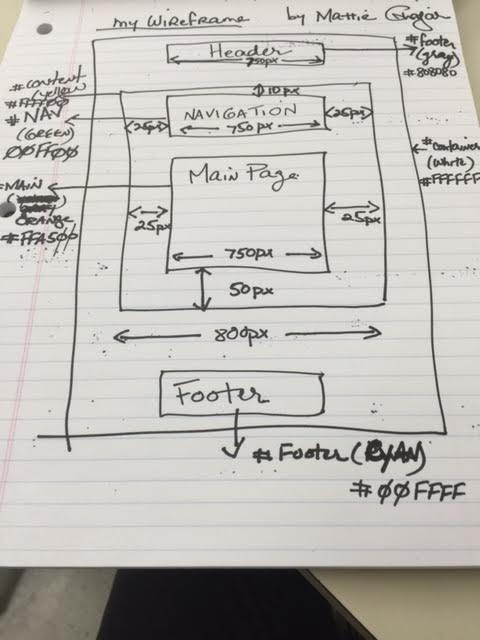 my WireFrame by Mattie
Header
750px
#footer
(gray)
#808080
#content
(yellow
#FFFF00
10px
#NAV
(GREEN)
00FF00
NAVIGATION
25px
25px
750px
#container
(white)
#FFFFFF
Main Page
#MAIN
ORANGE
#FFA500
25px
25px
750px
50px
800px
Footer
#Footer (CYAN)
#00FFFF